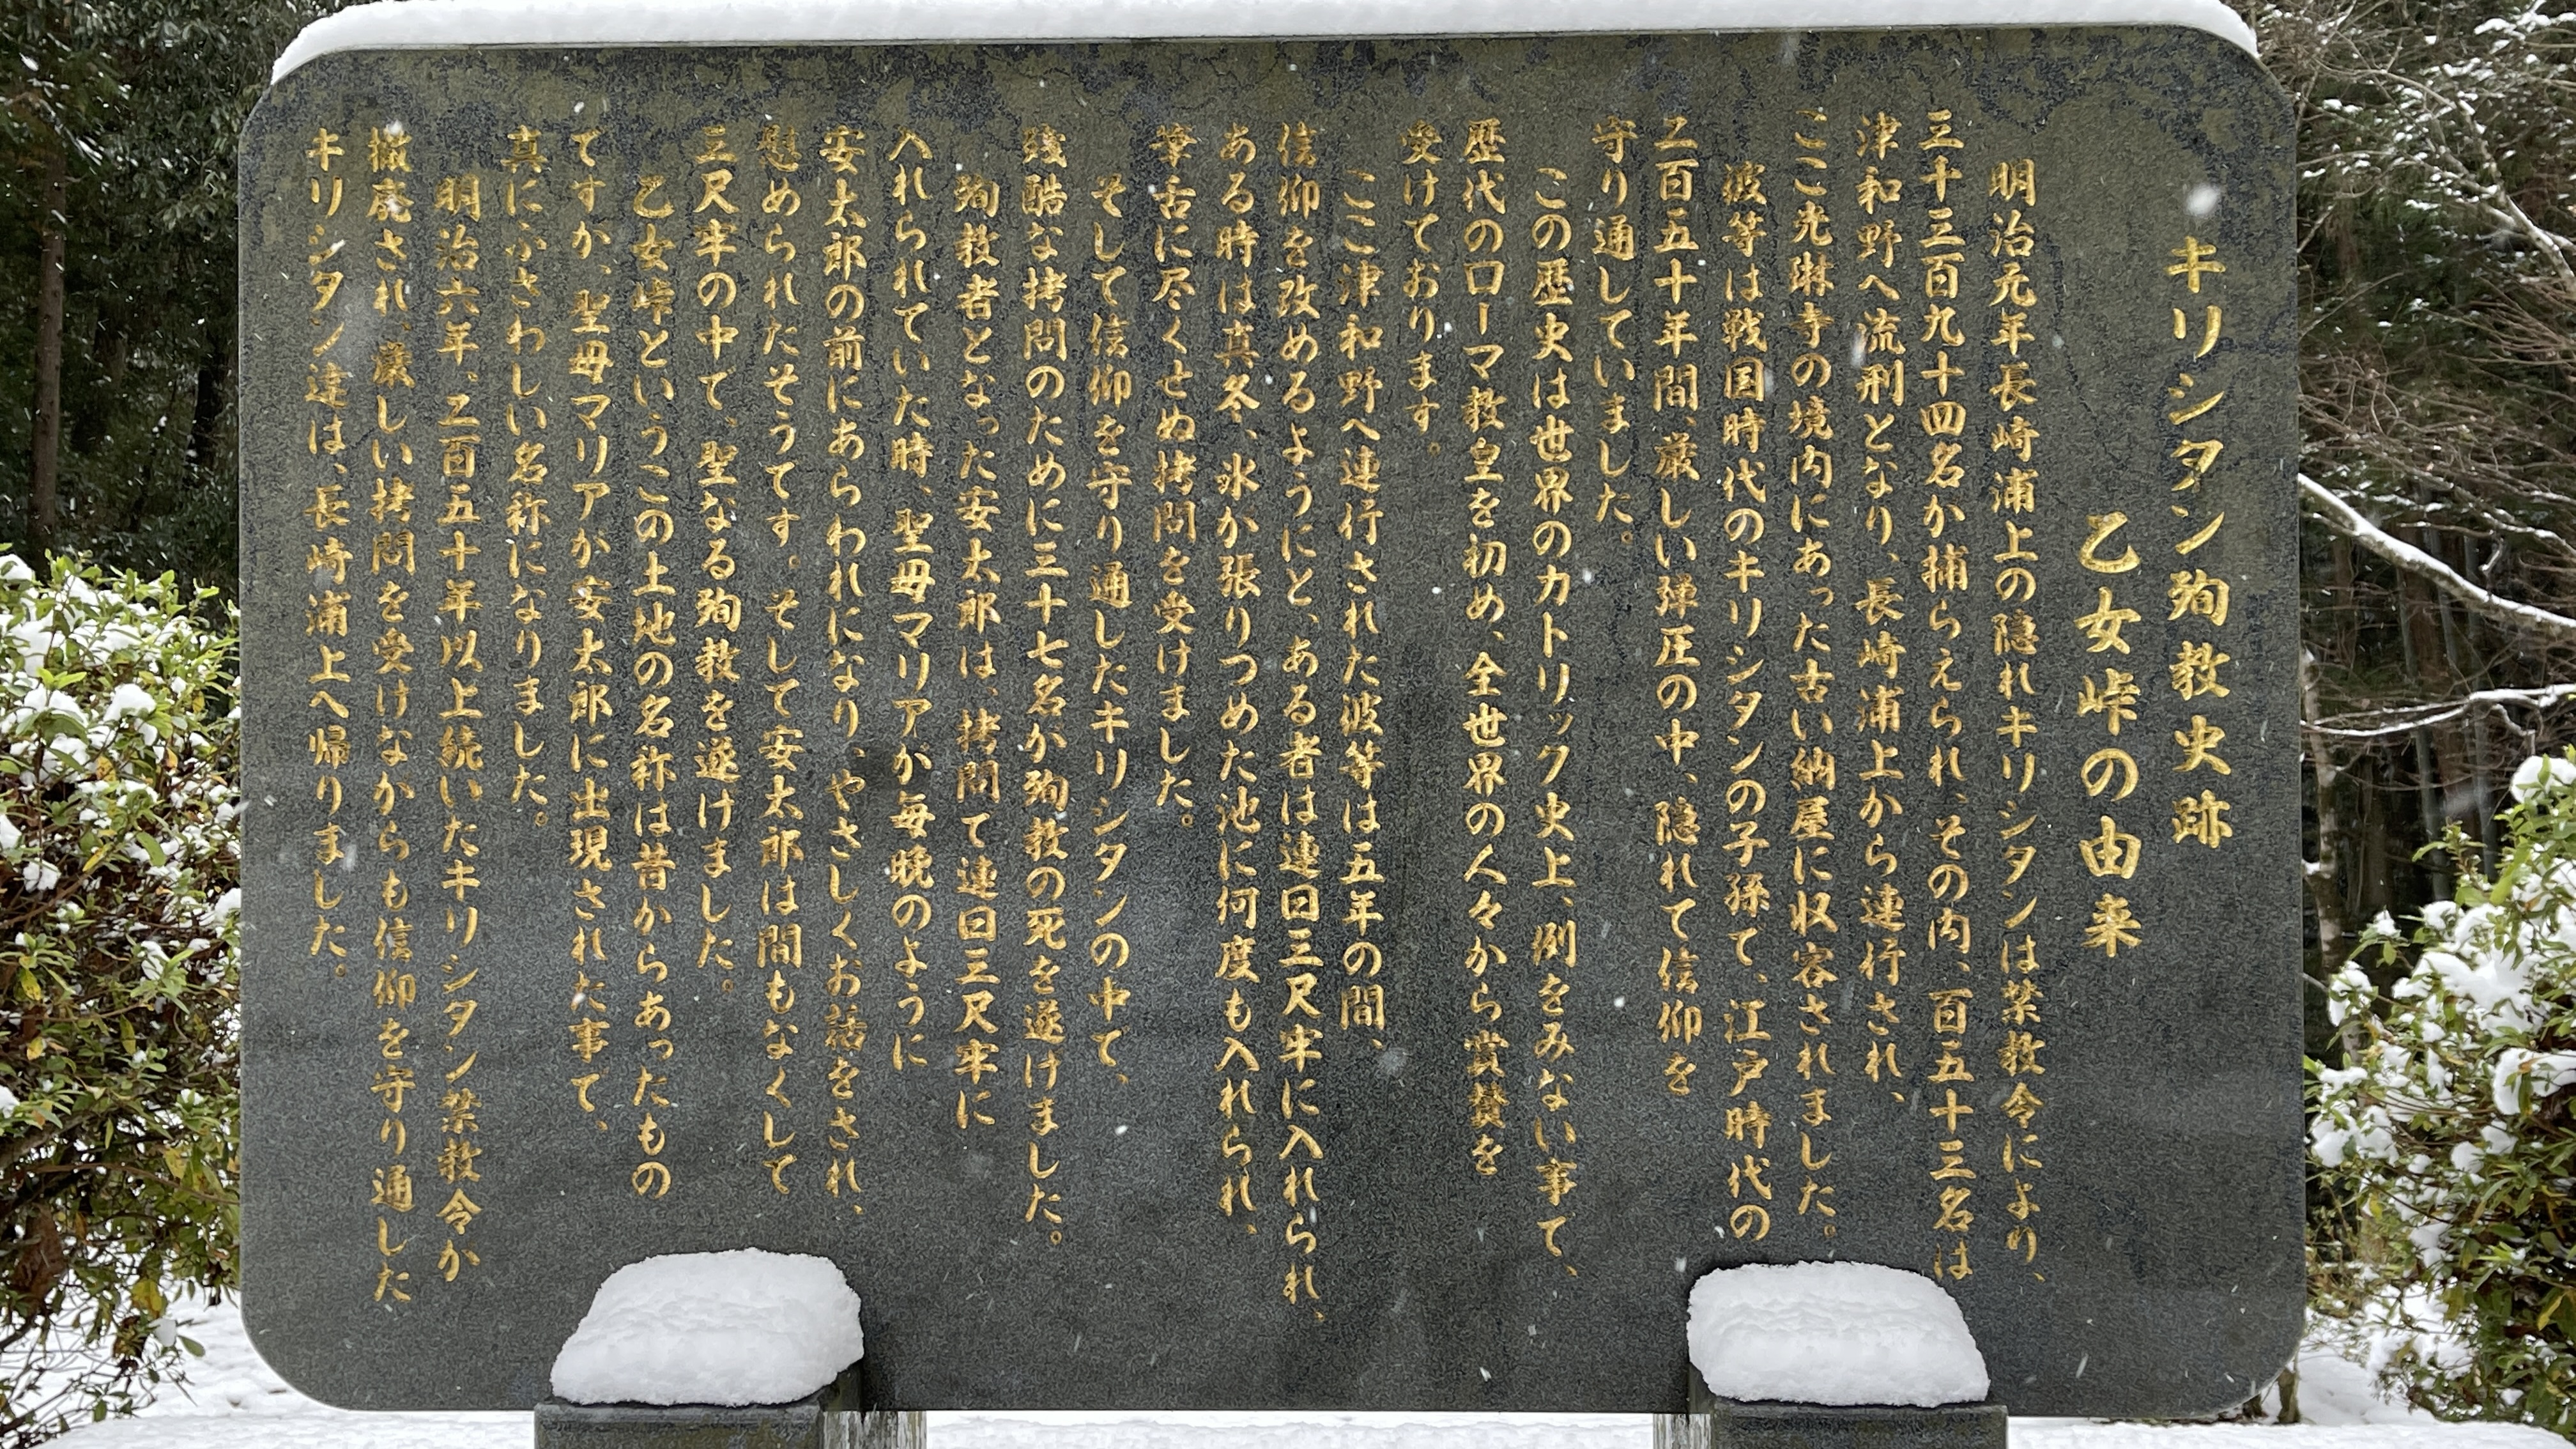 キリシタン殉教史跡
乙女峠の由来
明治元年長崎浦上の隠れキリシタンは禁教令により、
三千三百九十四名か捕らえられ、その内、百五十三名は
津和野へ流刑となり、長崎浦上から連行され、
ここ光琳寺の境内にあった古い納屋に収容されました。
彼等は戦国時代のキリシタンの子孫て、江戸時代の
二百五十年間、厳しい弾圧の中、隠れて信仰を
守り通していました。
この歴史は世界のカトリック史上、例をみない事て、
歴代のローマ教皇を初め、全世界の人々から賞賛を
受けております。
ここ津和野へ連行された彼等は五年の間、
信仰を改めるようにと、ある者は連日三尺牢に入れられ、
ある時は真冬、氷か張りつめた池に何度も入れられ、
筆舌に尽くせぬ拷問を受けました。
そして信仰を守り通したキリシタンの中て、
残酷な拷問のために三十七名か殉教の死を遂けました。
殉教者となった安太郎は、拷問て連日三尺牢に
入れられていた時、聖母マリアか毎晩のように
安太郎の前にあらわれになり、やさしくお話をされ、
慰められたそうてす。そして安太郎は間もなくして
三尺牢の中て、聖なる殉教を遂けました。
乙女峠というこの土地の名称は昔からあったもの
てすか、聖母マリアか安太郎に出現された事て、
真にふさわしい名称になりました。
明治六年。二百五十年以上続いたキリシタン禁教令か
撤廃され、厳しい拷問を受けなからも信仰を守り通した
キリシタン達は、長崎浦上へ帰りました。